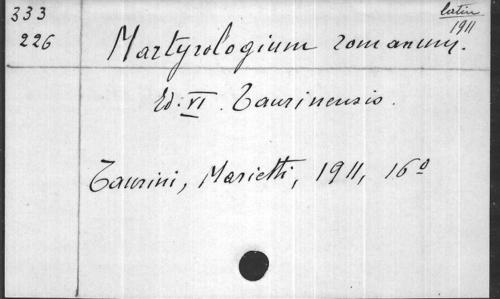 333
226
latin
1911
Martyrologium romanum.
Ed: VI. Taurinensis.
Taurini, Marietti, 1911, 16º